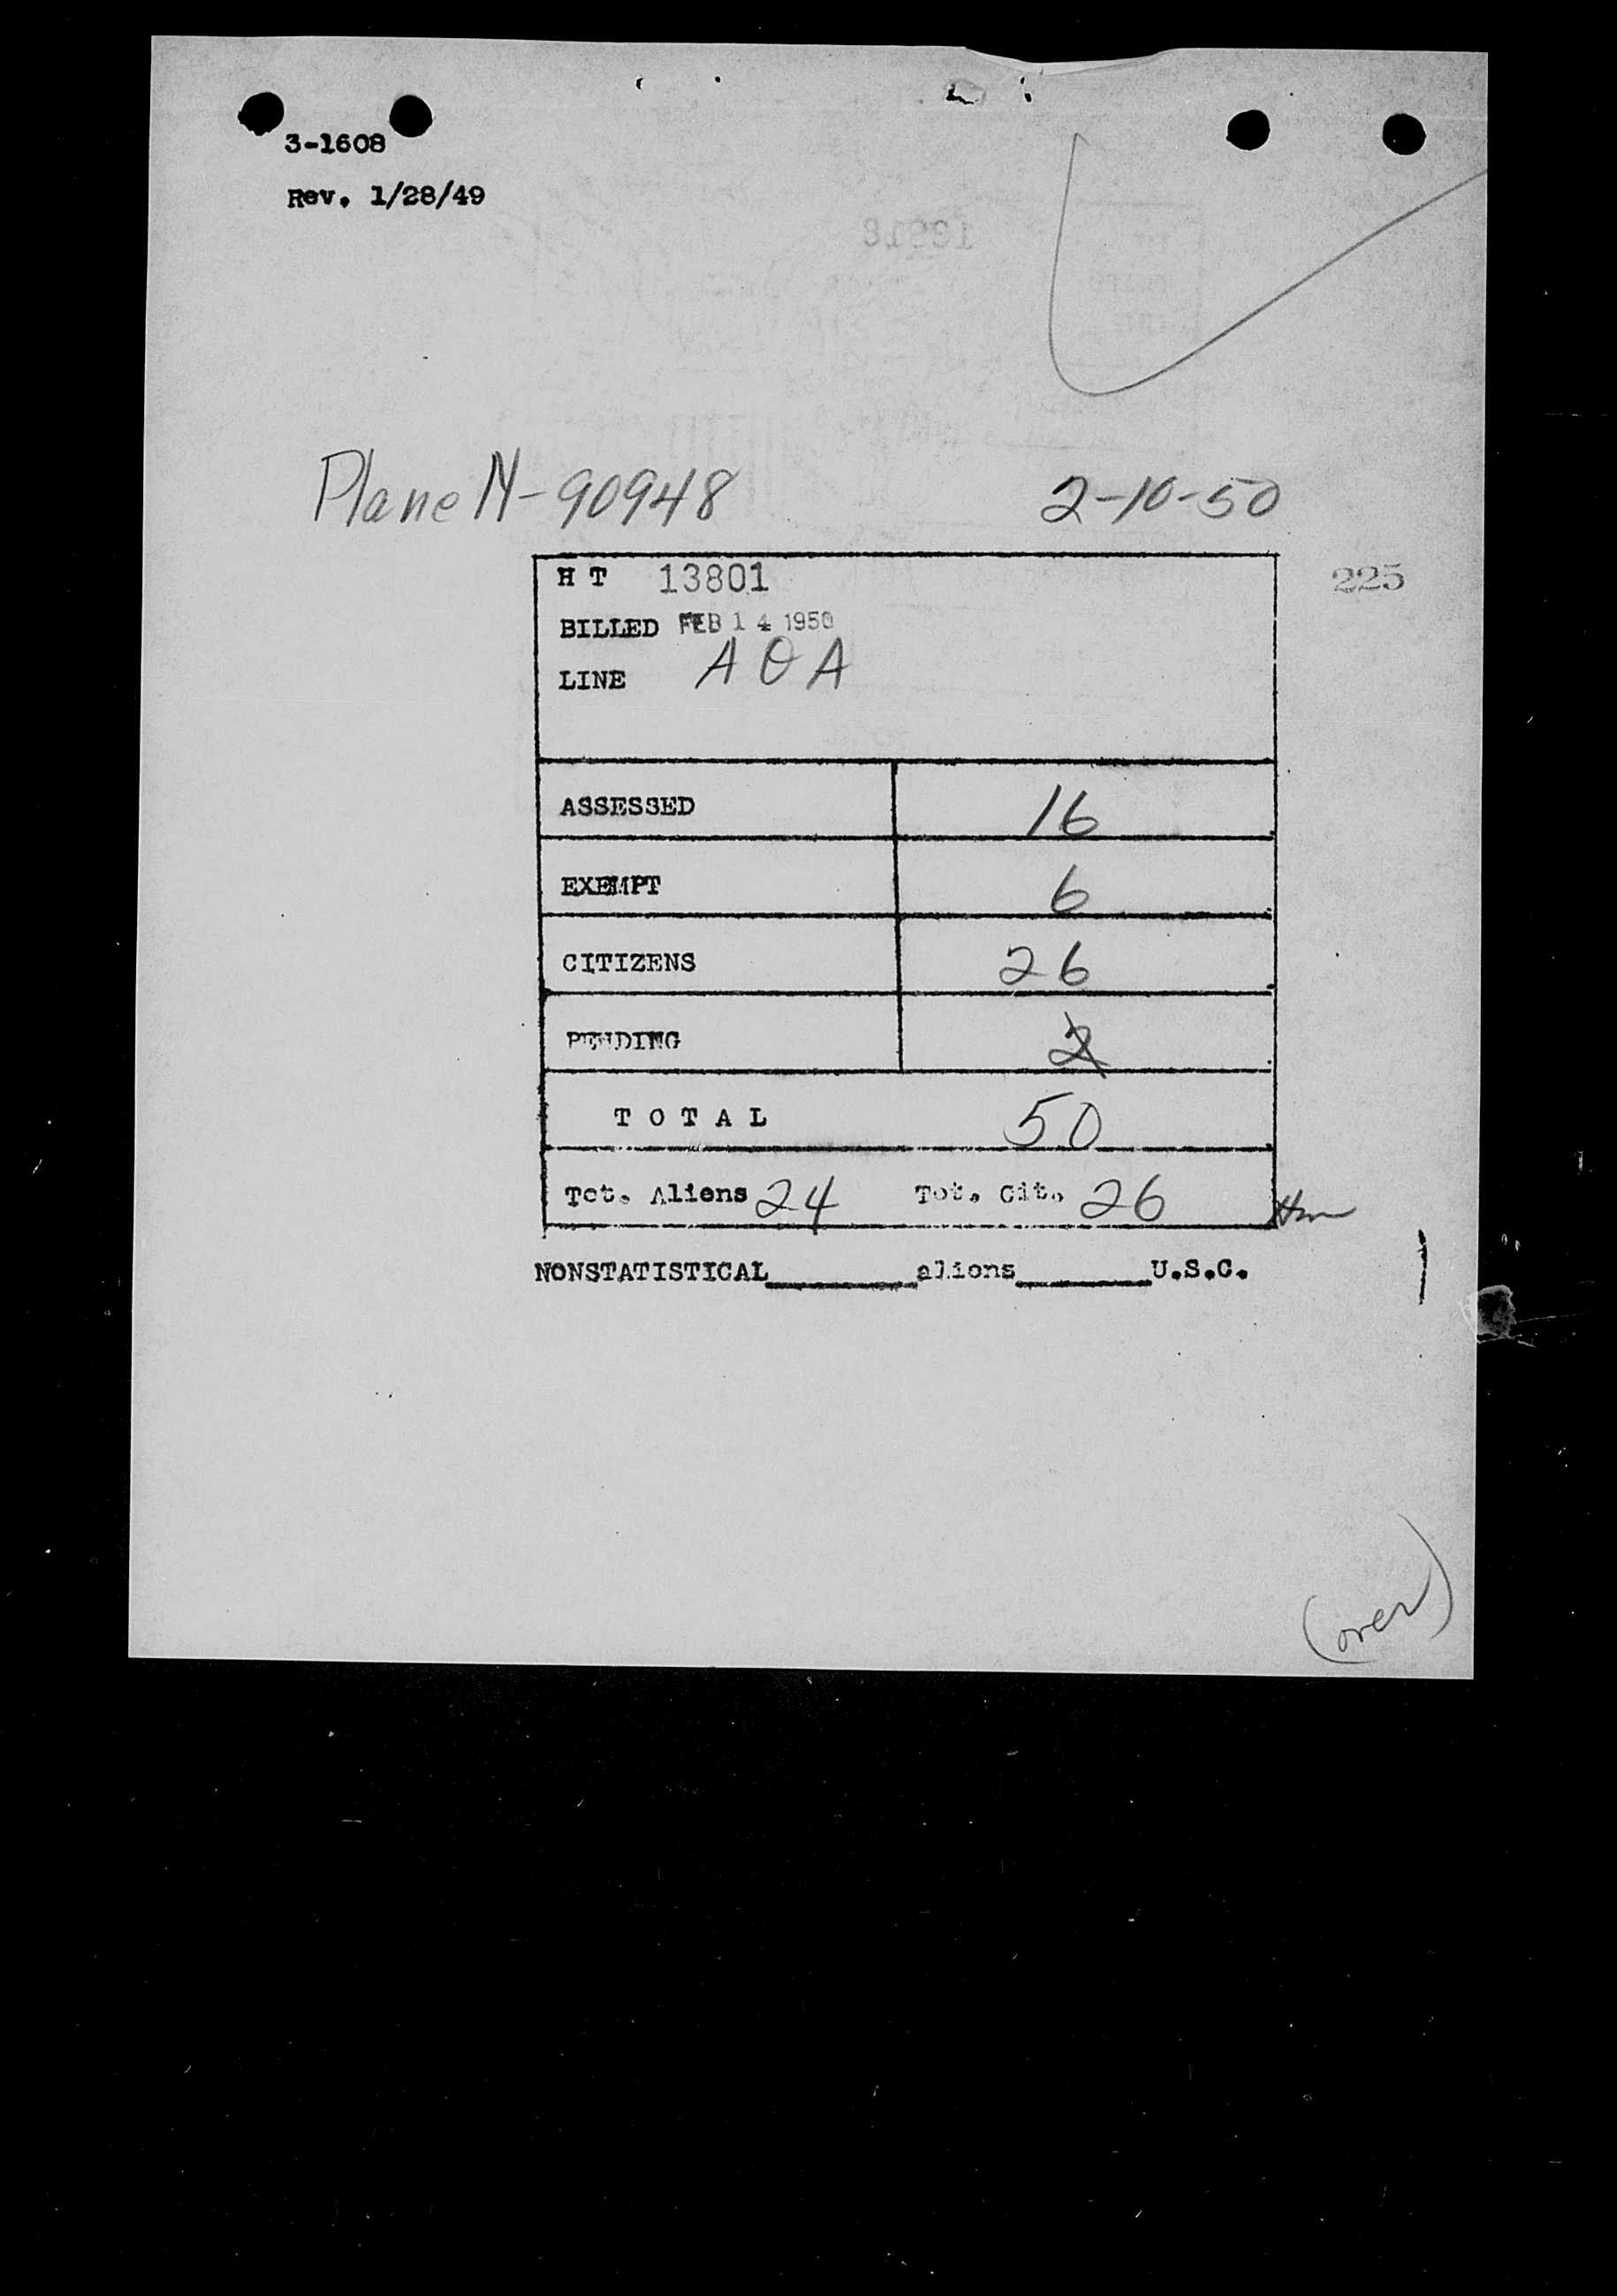 3-1608
Rev. 1/28/49
Plane N-90948 2-10-50
H T 13801 225
BILLED FEB 14 1950
LINE AOA
ASSESSED 16
EXEMPT 6
CITIZENS 26
PENDING 2
T O T A L 50
Tot. Aliens 24 Tot. Cit. 26
NONSTATISTICAL aliens U.S.C.
(over)